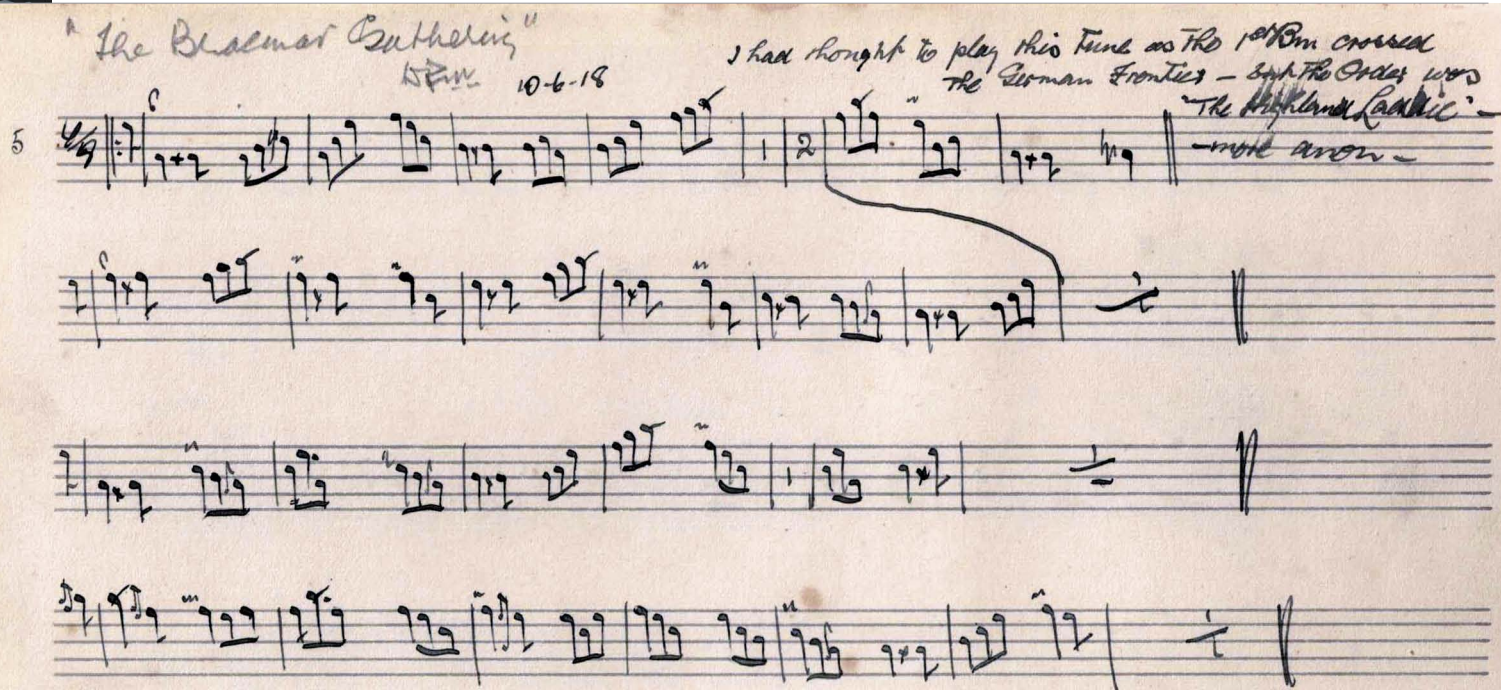 "The Braemar Gathering"
10-6-18
I had thought to play this Tune as The 1st Bn crossed
The German Frontier – but The Order was
"The Highland Laddie" –
– more anon –
5
1 2
1